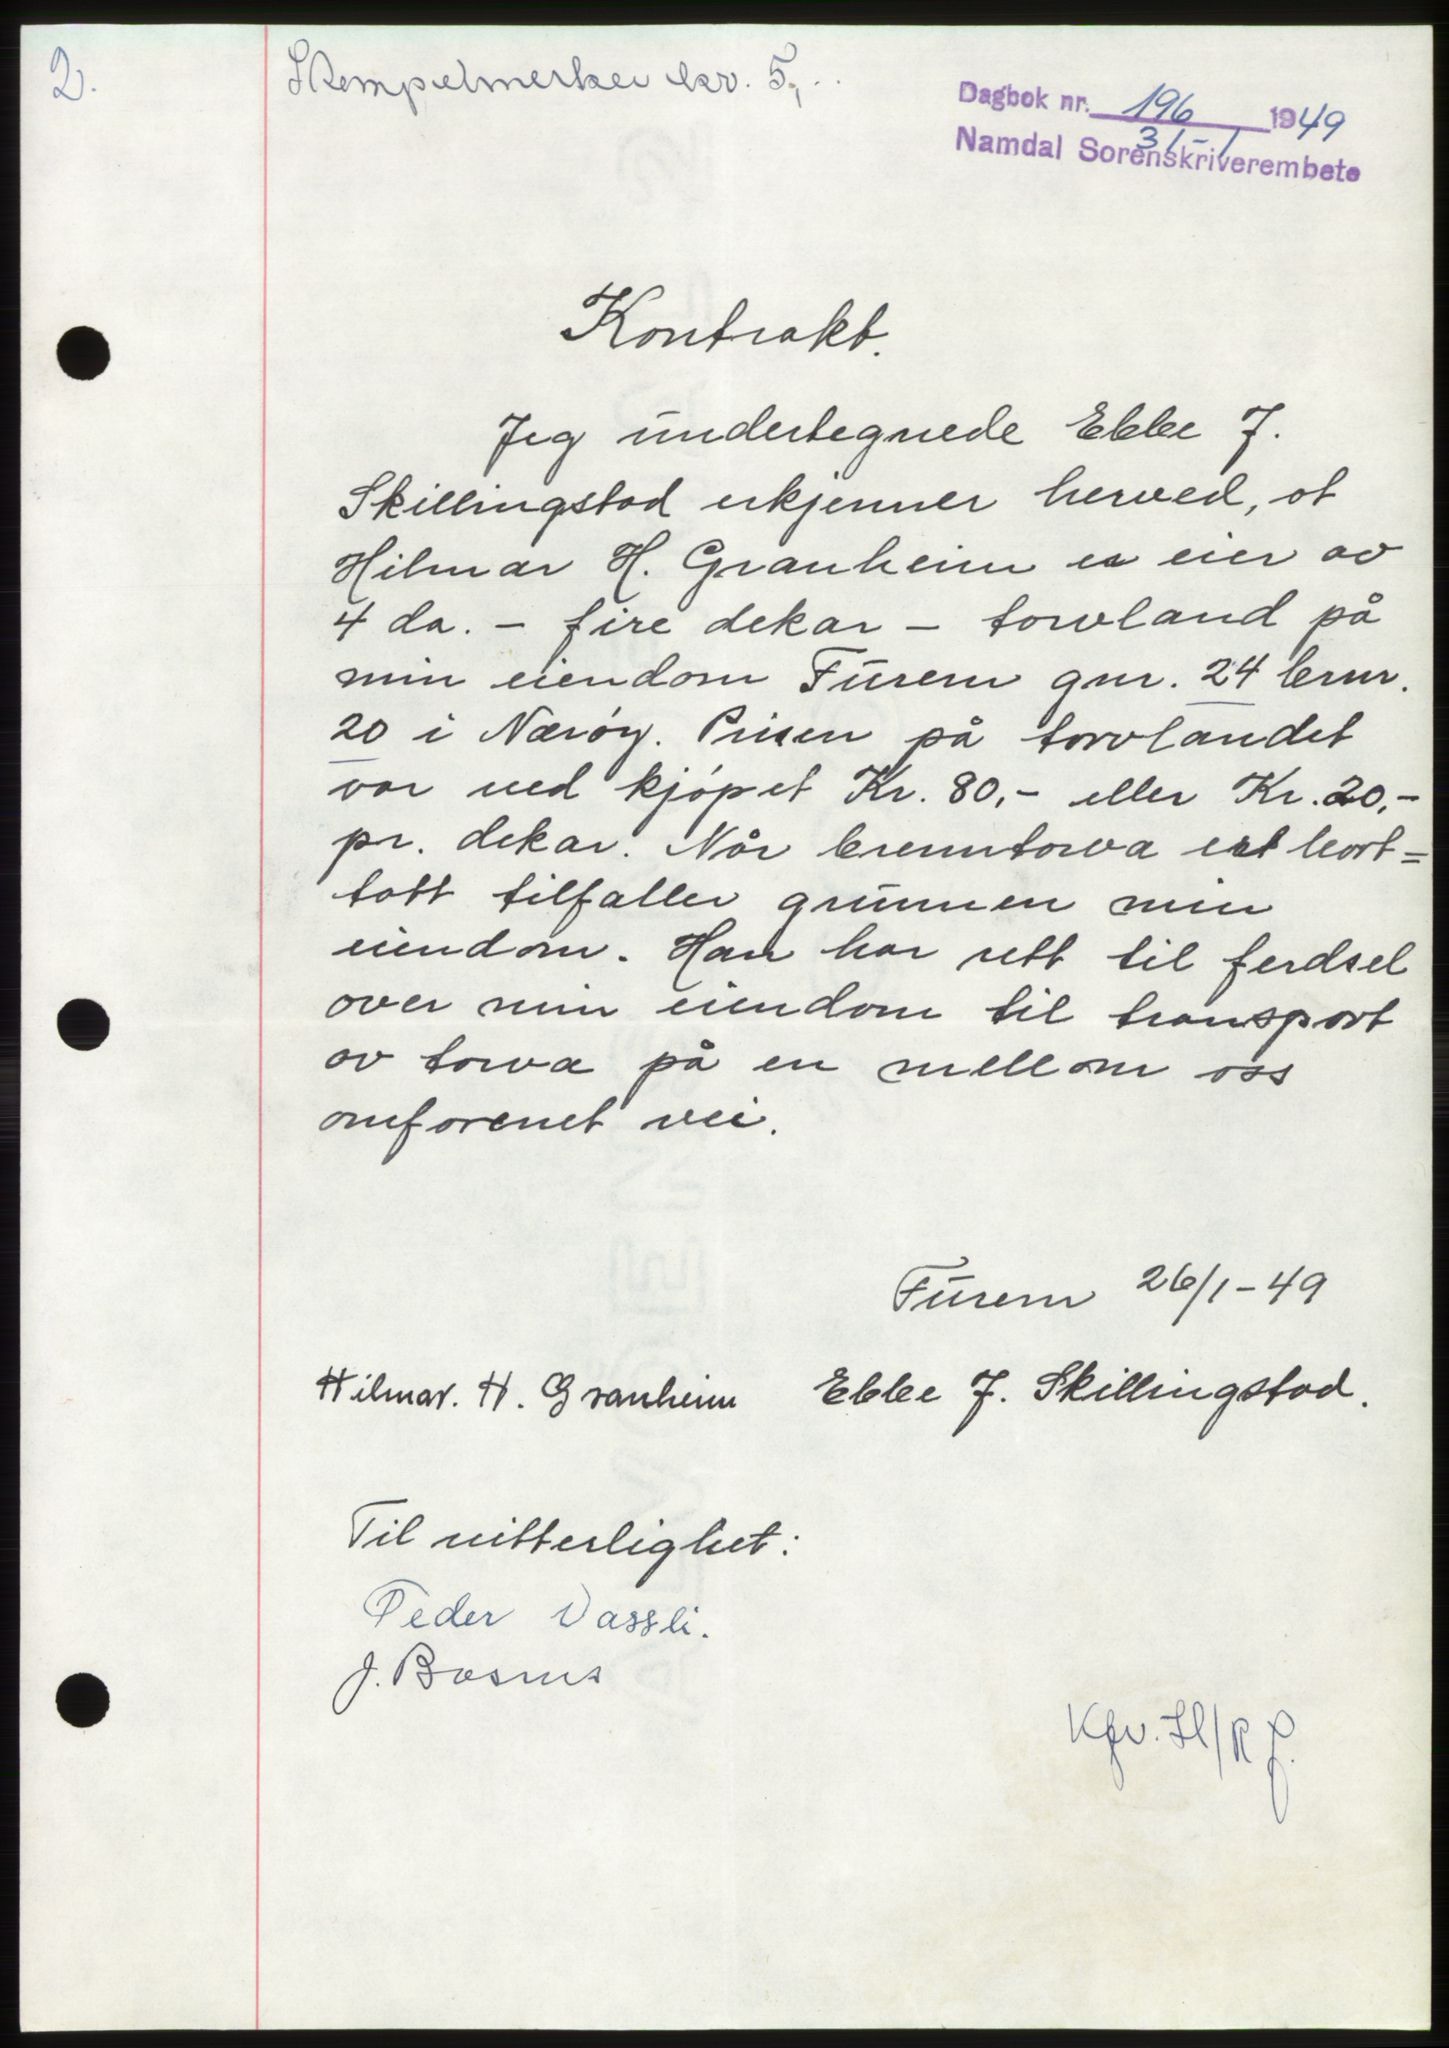 2.
Stempelmerker kr. 5,-.
Dagbok nr. 196 1949
31-1
Namdal Sorenskriverembete
Kontrakt.
Jeg undertegnede Ebbe J.
Skillingstad erkjenner herved, at
Hilmar H. Granheim er eier av
4 da. - fire dekar - torvland på
min eiendom Furem gnr. 24 brnr.
20 i Nærøy. Prisen på torvlandet
var ved kjøpet Kr. 80,- eller Kr. 20,-
pr. dekar. Når brenntorva er bort=
tatt tilfaller grunnen min
eiendom. Han har rett til ferdsel
over min eiendom til transport
av torva på en mellom oss
omforenet vei.
Furem 26/1-49
Hilmar. H. Granheim Ebbe J. Skillingstad.
Til vitterlighet:
Peder Vassli.
J. Bosnes